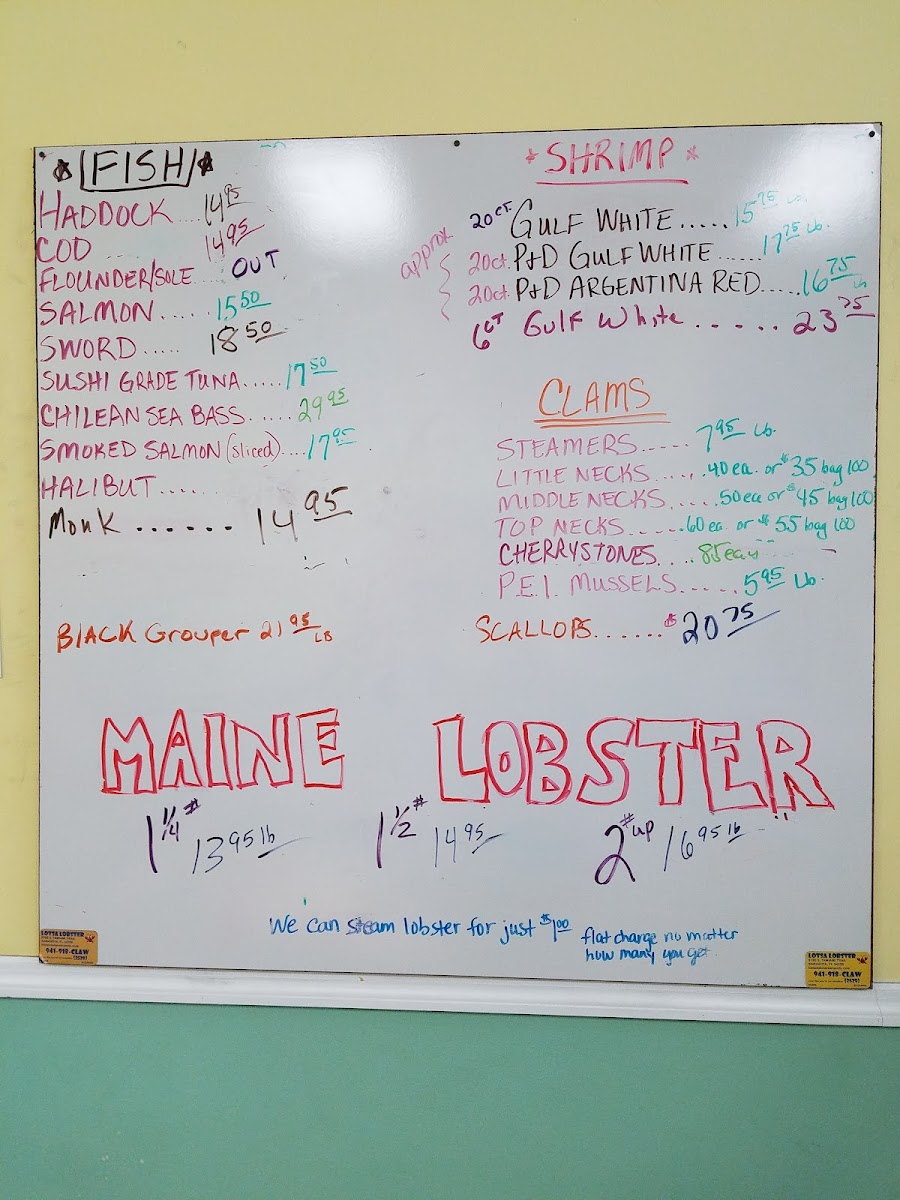 *FISH*
HADDOCK ... 14.95
COD 14.95
FLOUNDER/SOLE OUT
SALMON ..... 15.50
SWORD ..... 18.50
SUSHI GRADE TUNA ..... 17.50
CHILEAN SEA BASS ..... 29.95
SMOKED SALMON (sliced) .... 17.95
HALIBUT ....
Monk ...... 14.95
BLACK Grouper 21.95 LB
*SHRIMP*
approx
20CT. GULF WHITE ..... 15.75 Lb.
20ct. P+D GULF WHITE ..... 17.75 Lb.
20ct. P+D ARGENTINA RED .... 16.75 Lb
6CT Gulf White ..... 23.75
CLAMS
STEAMERS ..... 7.95 Lb.
LITTLE NECKS ..... .40 ea. or $35 bag 100
MIDDLE NECKS ..... .50 ea or $45 bag 100
TOP NECKS ..... .60 ea. or $55 bag 100
CHERRYSTONES ... .85 each
P.E.I. MUSSELS ..... 5.95 Lb.
SCALLOPS ...... $20.75
MAINE LOBSTER
1 1/4# 13.95 lb
1 1/2# 14.95
2# up 16.95 lb
We can steam lobster for just $1.00
flat charge no matter
how many you get
LOTSA LOBSTER
941-918-CLAW
(2529)
LOTSA LOBSTER
941-918-CLAW
(2529)